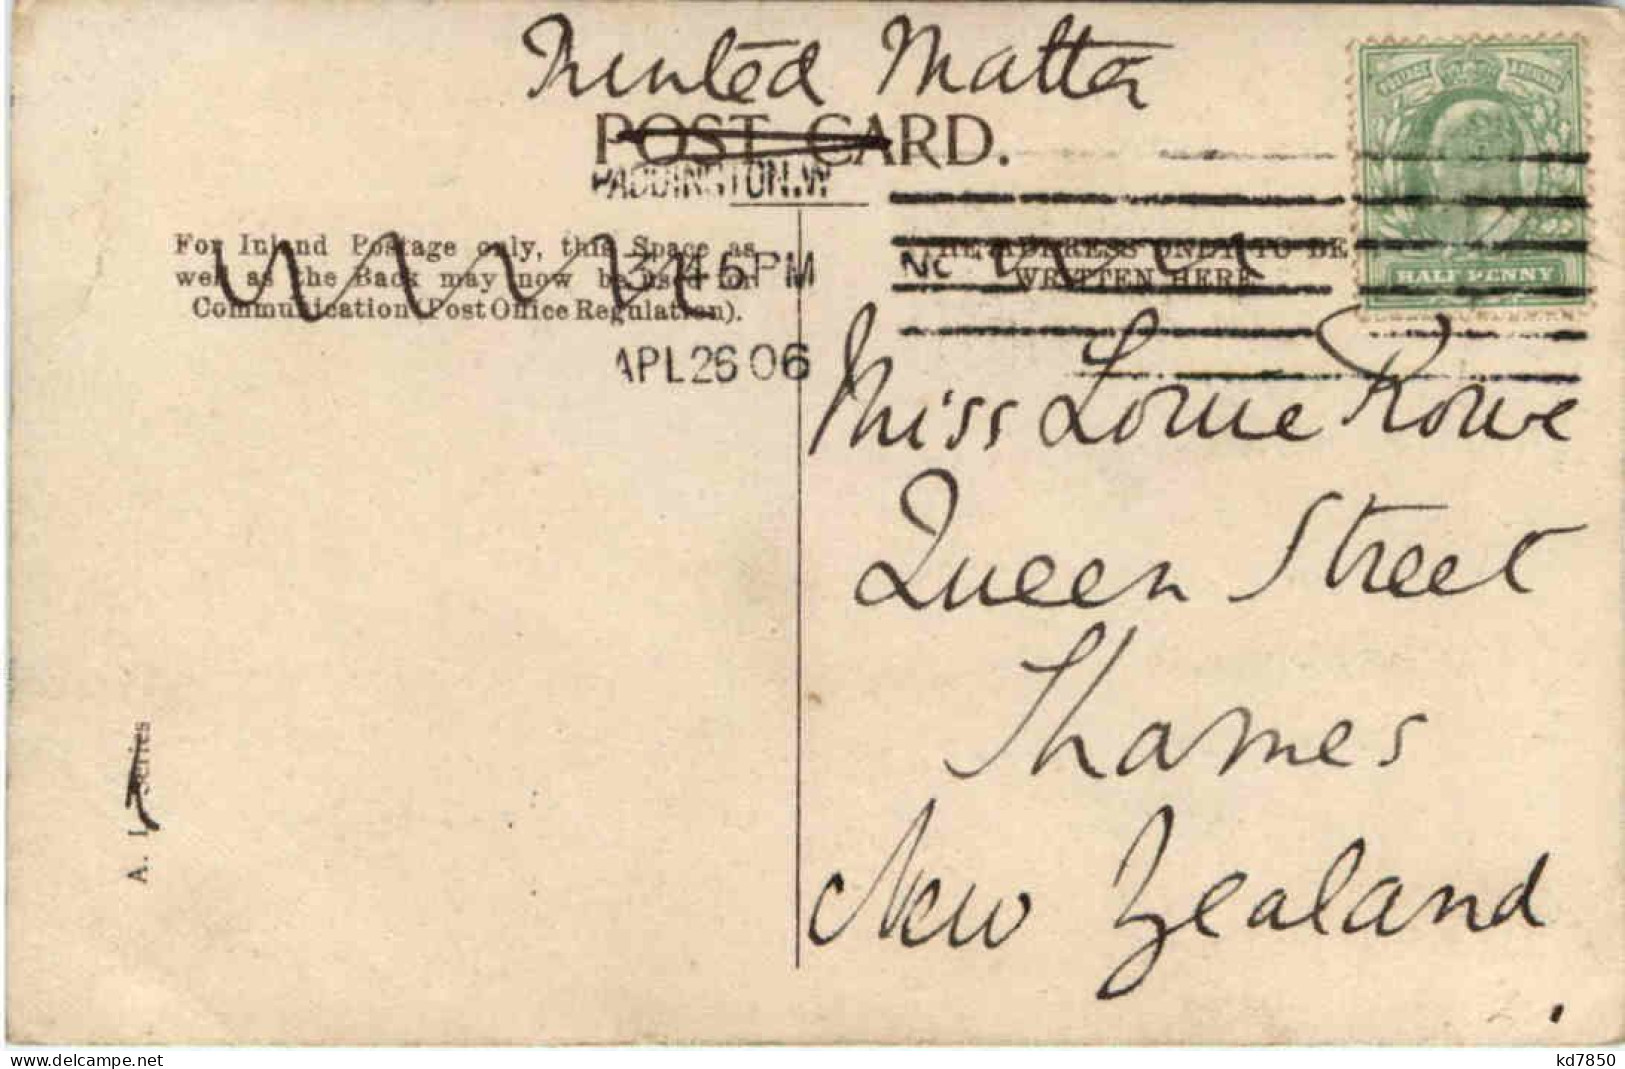 Printed Matter
POST CARD.
PADDINGTON.W
For Inland Postage only, this Space as
well as the Back may now be used for
Communication (Post Office Regulation).
3 45 PM
APL 26 06
THE ADDRESS ONLY TO BE
WRITTEN HERE
POSTAGE & REVENUE
HALF PENNY
Miss Lorrie Rowe
Queen Street
Thames
New Zealand
Series
kd7850